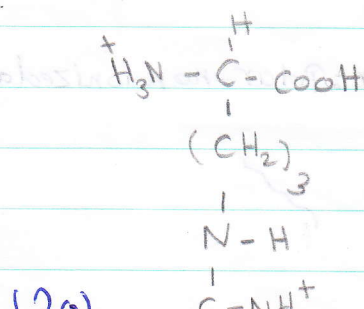 H
H₃N⁺ - C - COOH
(CH₂)₃
N - H
(20)
C - NH⁺